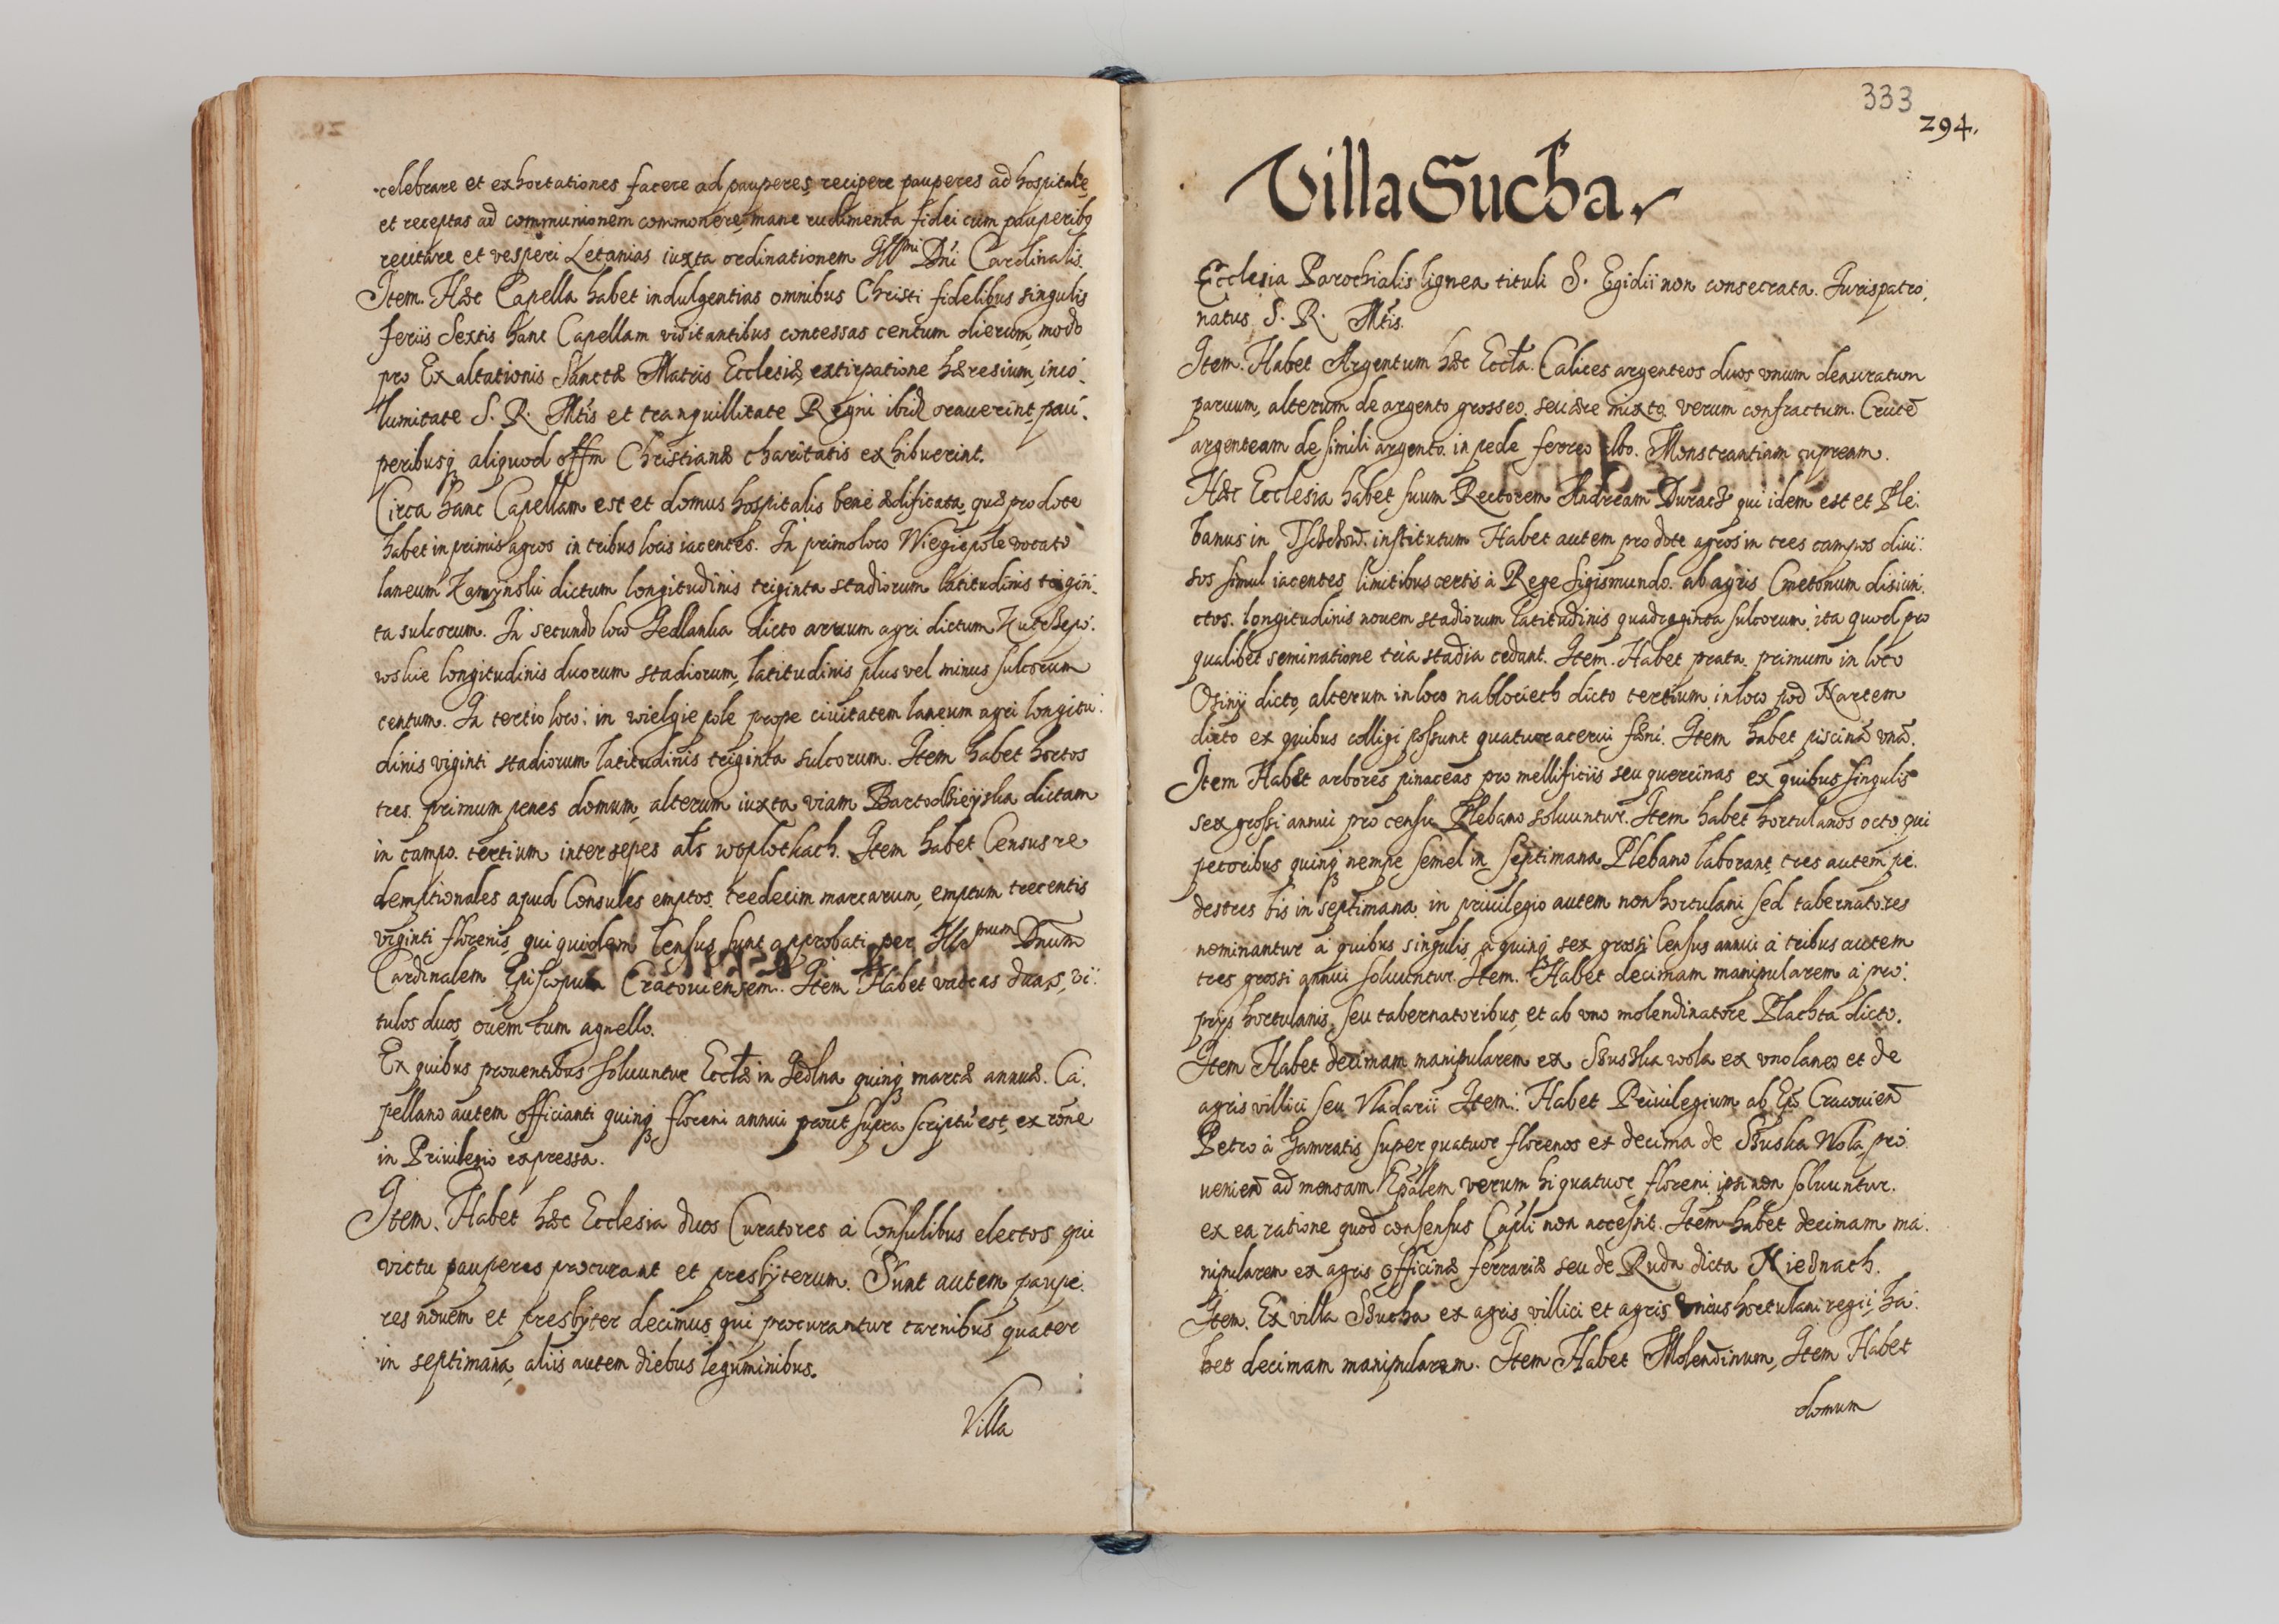 celebrare et exhortationes facere ad pauperes, recipere pauperes ad hospitale,
et receptas ad communionem commonere, mane rudimenta fidei cum pauperibꝫ
recitare et vesperi Letanias iuxta ordinationem Illmi Dni Cardinalis.
Item. Hæc Capella habet indulgentias omnibus Christi fidelibus singulis
feriis sextis hanc Capellam visitantibus concessas centum dierum, modo
pro Exaltationis Sanctæ Matris Ecclesiæ, extirpatione hæresium, inco-
lumitate S. R. Mtis et tranquillitate Regni ibid orauerint, pau-
peribusqꝫ aliquod offm Christianæ charitatis exhibuerint.
Circa hanc Capellam est et domus hospitalis bene ædificata, quæ pro dote
habet in primis agros in tribus locis iacentes. In primo loco Wiegiepole vocato
laneum dictum longitudinis triginta stadiorum latitudinis trigin-
ta sulcorum. In secundo loco Jedlanka dicto aruum agri dictum Kutchepo-
wskie longitudinis duorum stadiorum, latitudinis plus vel minus sulcorum
centum. In tertio loco: in wielgie pole prope ciuitatem laneum agri longitu-
dinis viginti stadiorum latitudinis triginta sulcorum. Item habet hortos
tres. primum penes domum, alterum iuxta viam Bartodzieyska dictam
in campo. tertium inter sepes als woplotkach. Item habet Census re
demptionales apud Consules emptos. tredecim marcarum, emptum trecentis
viginti florenis, qui quidem Census sunt approbati per Illmum Dnum
Cardinalem Episcopum Cracouiensem. Item Habet vaccas duas, vi-
tulos duos, ouem cum agnello.
Ex quibus prouentibus soluuntur Ecclæ in Jedlna quinqꝫ marcæ annuæ. Ca-
pellano autem officianti quinqꝫ floreni annui prout supra scriptū est, ex rōne
in Priuilegio expressa.
Item. Habet hæc Ecclesia duos Curatores à Consulibus electos qui
victu pauperes procurant et presbÿterum. Sunt autem paupe-
res nouem et presbÿter decimus, qui procurantur carnibus quater
in septimana, aliis autem diebus leguminibus.
Villa
333
294.
Villa Sucha.
Ecclesia Parochialis lignea tituli S. Egidii non consecrata. Jurispatro-
natus S. R. Mtis.
Item. Habet Argentum hæc Eccla. Calices argenteos duos vnum deauratum
paruum, alterum de argento grosseo. seu ære mixto. verum confractum. Crucē
argenteam de simili argento. in pede ferreo albo. Monstrantiam cupream.
Hæc Ecclesia habet suum Rectorem Andream Duracz qui idem est et Ple-
banus in institutum Habet autem pro dote agros in tres campos diui-
sos simul iacentes, limitibus certis à Rege Sigismundo. ab agris Cmetonum disiun-
ctos. longitudinis nouem stadiorum latitudinis quadraginta sulcorum, ita quod pro
qualibet seminatione tria stadia cedant. Item. Habet prata. primum in loco
Osiny dicto, alterum in loco nablociech dicto tertium in loco pod Nartem
dicto ex quibus colligi possunt quatuor acerui fæni. Item habet piscinā vnā.
Item Habet arbores pinaceas pro mellificiis seu quercinas ex quibus singulis
sex grossi annui pro censu Plebano soluuntur. Item habet hortulanos octo, qui
pecoribus quinqꝫ nempe semel in septimana Plebano laborant, tres autem pe-
destres bis in septimana, in priuilegio autem non hortulani sed tabernatores
nominantur à quibus singulis, à quinqꝫ sex grossi Census annui à tribus autem
tres grossi annui soluuntur. Item. Habet decimam manipularem à pro-
prÿs hortulanis, seu tabernatoribus, et ab vno molendinatore Plachta dicto.
Item Habet decimam manipularem ex wola ex vno laneo et de
agris villici seu Vladarii Item. Habet Priuilegium ab Epo Cracouień
Petro à Gamratis, super quatuor florenos ex decima de Wola, pro
uenień ad mensam Epālem verum hi quatuor floreni ipsi non soluuntur.
ex ea ratione quod consensus Capli non accessit. Item habet decimam ma-
nipularem ex agris officinæ ferrariæ seu de Ruda dicta Kiednach.
Item. Ex villa Sucha ex agris villici et agris vnius hortulani regii, ha-
bet decimam manipularem. Item Habet Molendinum, Item Habet
domum